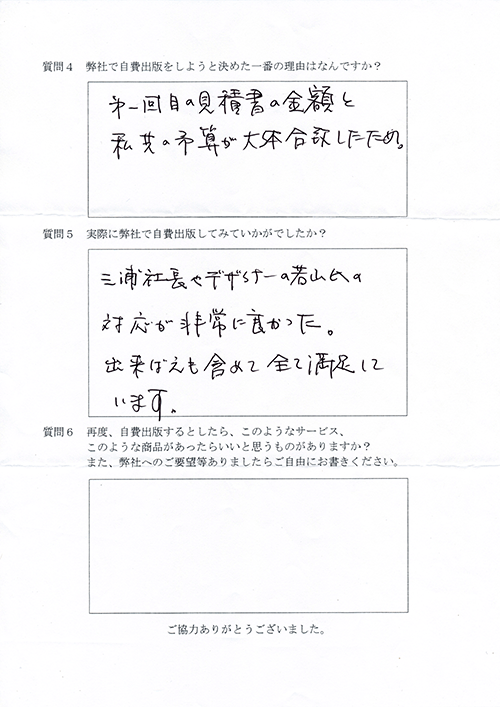 質問４ 弊社で自費出版をしようと決めた一番の理由はなんですか？
第一回目の見積書の金額と
私共の予算が大体合致したため。
質問５ 実際に弊社で自費出版してみていかがでしたか？
三浦社長やデザイナーの若山氏の
対応が非常に良かった。
出来ばえも含めて全て満足して
います。
質問６ 再度、自費出版するとしたら、このようなサービス、
このような商品があったらいいと思うものがありますか？
また、弊社へのご要望等ありましたらご自由にお書きください。
ご協力ありがとうございました。